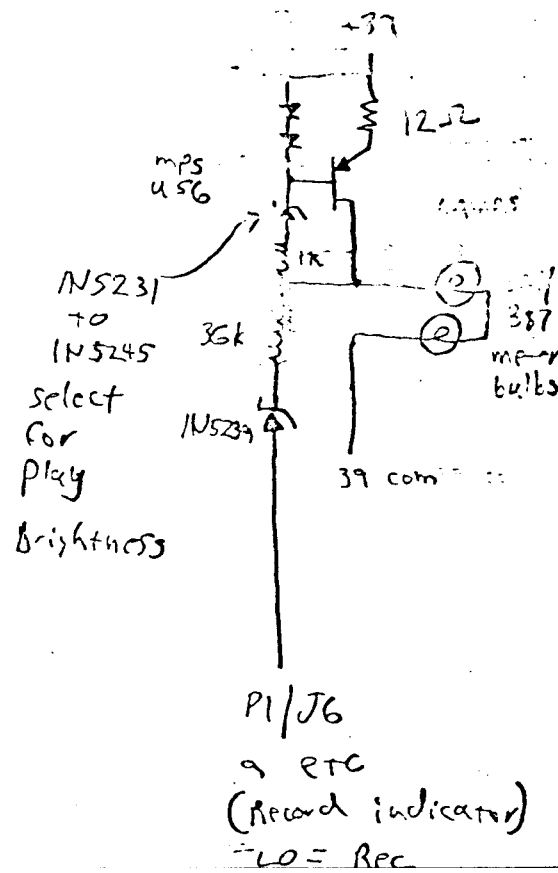 +39
12Ω
mps
u56
1K
1N5231
to
1N5245
select
for
play
brightness
36k
387
bulbs
39 com
P1/J6
9 etc
(Record indicator)
LO = Rec